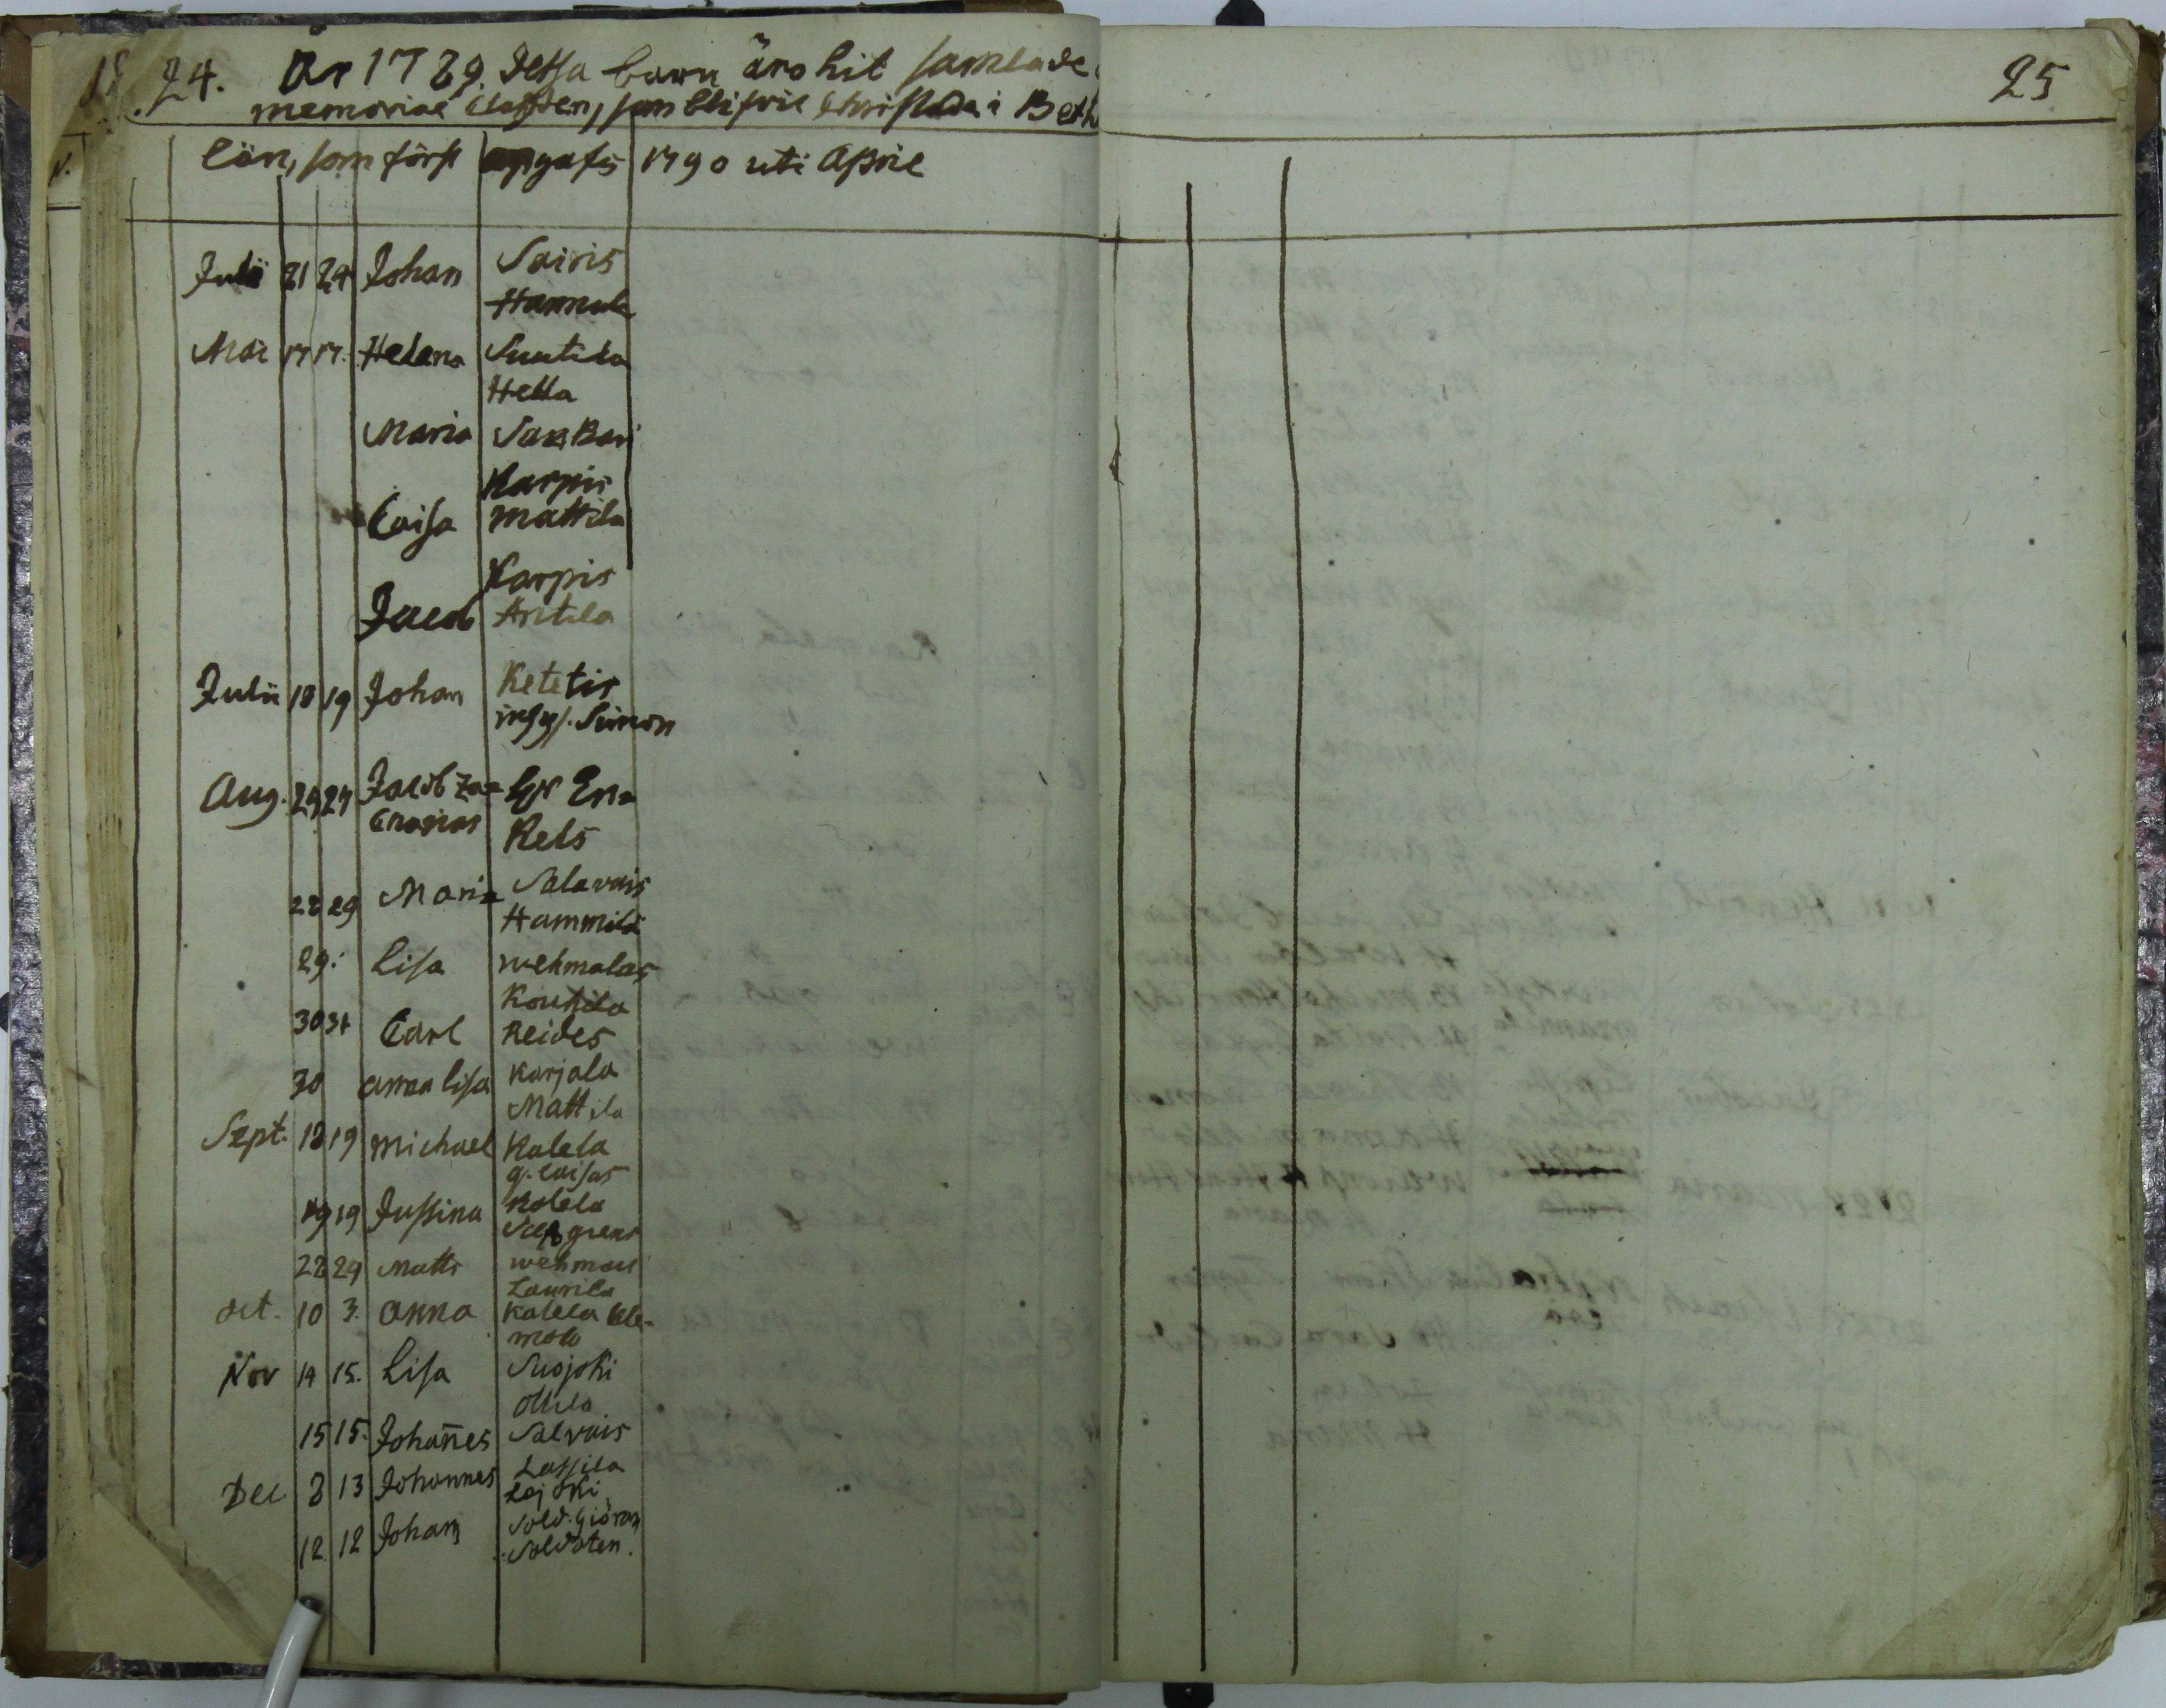 24. År 1789. Dessa barn äro hit samlade
memoriae som Christnade i Beth
län, som först upgafs 1790 uti April
25
Julii 21 24 Johan Sairis
Hannula
Mai 17 17. Helena Suutila
Hella
Maria Sak Kari
Karpis
Caisa Mattila
Karpis
Jacob Antila
Julii 18 19 Johan Ketetis
inhys. Simon
Aug. 24 24 Jacob Za=
Ern=
Kels
28 29 Maria Salavais
Hammila
29. Lisa wehmalais
Koukila
30 31 Carl Reides
30 anna lisa Karjala
Mattila
Sept. 18 19 Michael Kalela
g. Caisas
19 19 Jussina Kalela
grens
22 24 Matts wehmais
Laurila
Oct. 10 3. Anna Kalela Kle-
mola
Nov 14 15. Lisa Suojoki
Ollila
15 15. Johan̄es Salvais
Lassila
Dec 8 13 Johannes Lejoki
Sold. Giöran
12 12 Johan Soldaten.